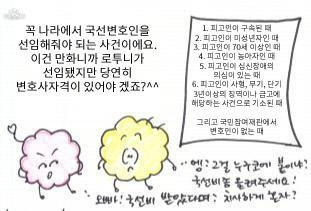 꼭 나라에서 국선변호인을
선임해줘야 되는 사건이에요.
이건 만화니까 로투니가
선임됐지만 당연히
변호사자격이 있어야 겠죠?^^
1. 피고인이 구속된 때
2. 피고인이 미성년자인 때
3. 피고인이 70세 이상인 때
4. 피고인이 농아자인 때
5. 피고인이 심신장애의
의심이 있는 때
6. 피고인이 사형, 무기, 단기
3년이상의 징역이나 금고에
해당하는 사건으로 기소된 때
그리고 국민참여재판에서
변호인이 없는 때
엥? 그걸 누구코에 붙이나?
국선비좀 올려주세요!
오빠! 국선비 받았다며? 치사하게 놀자?